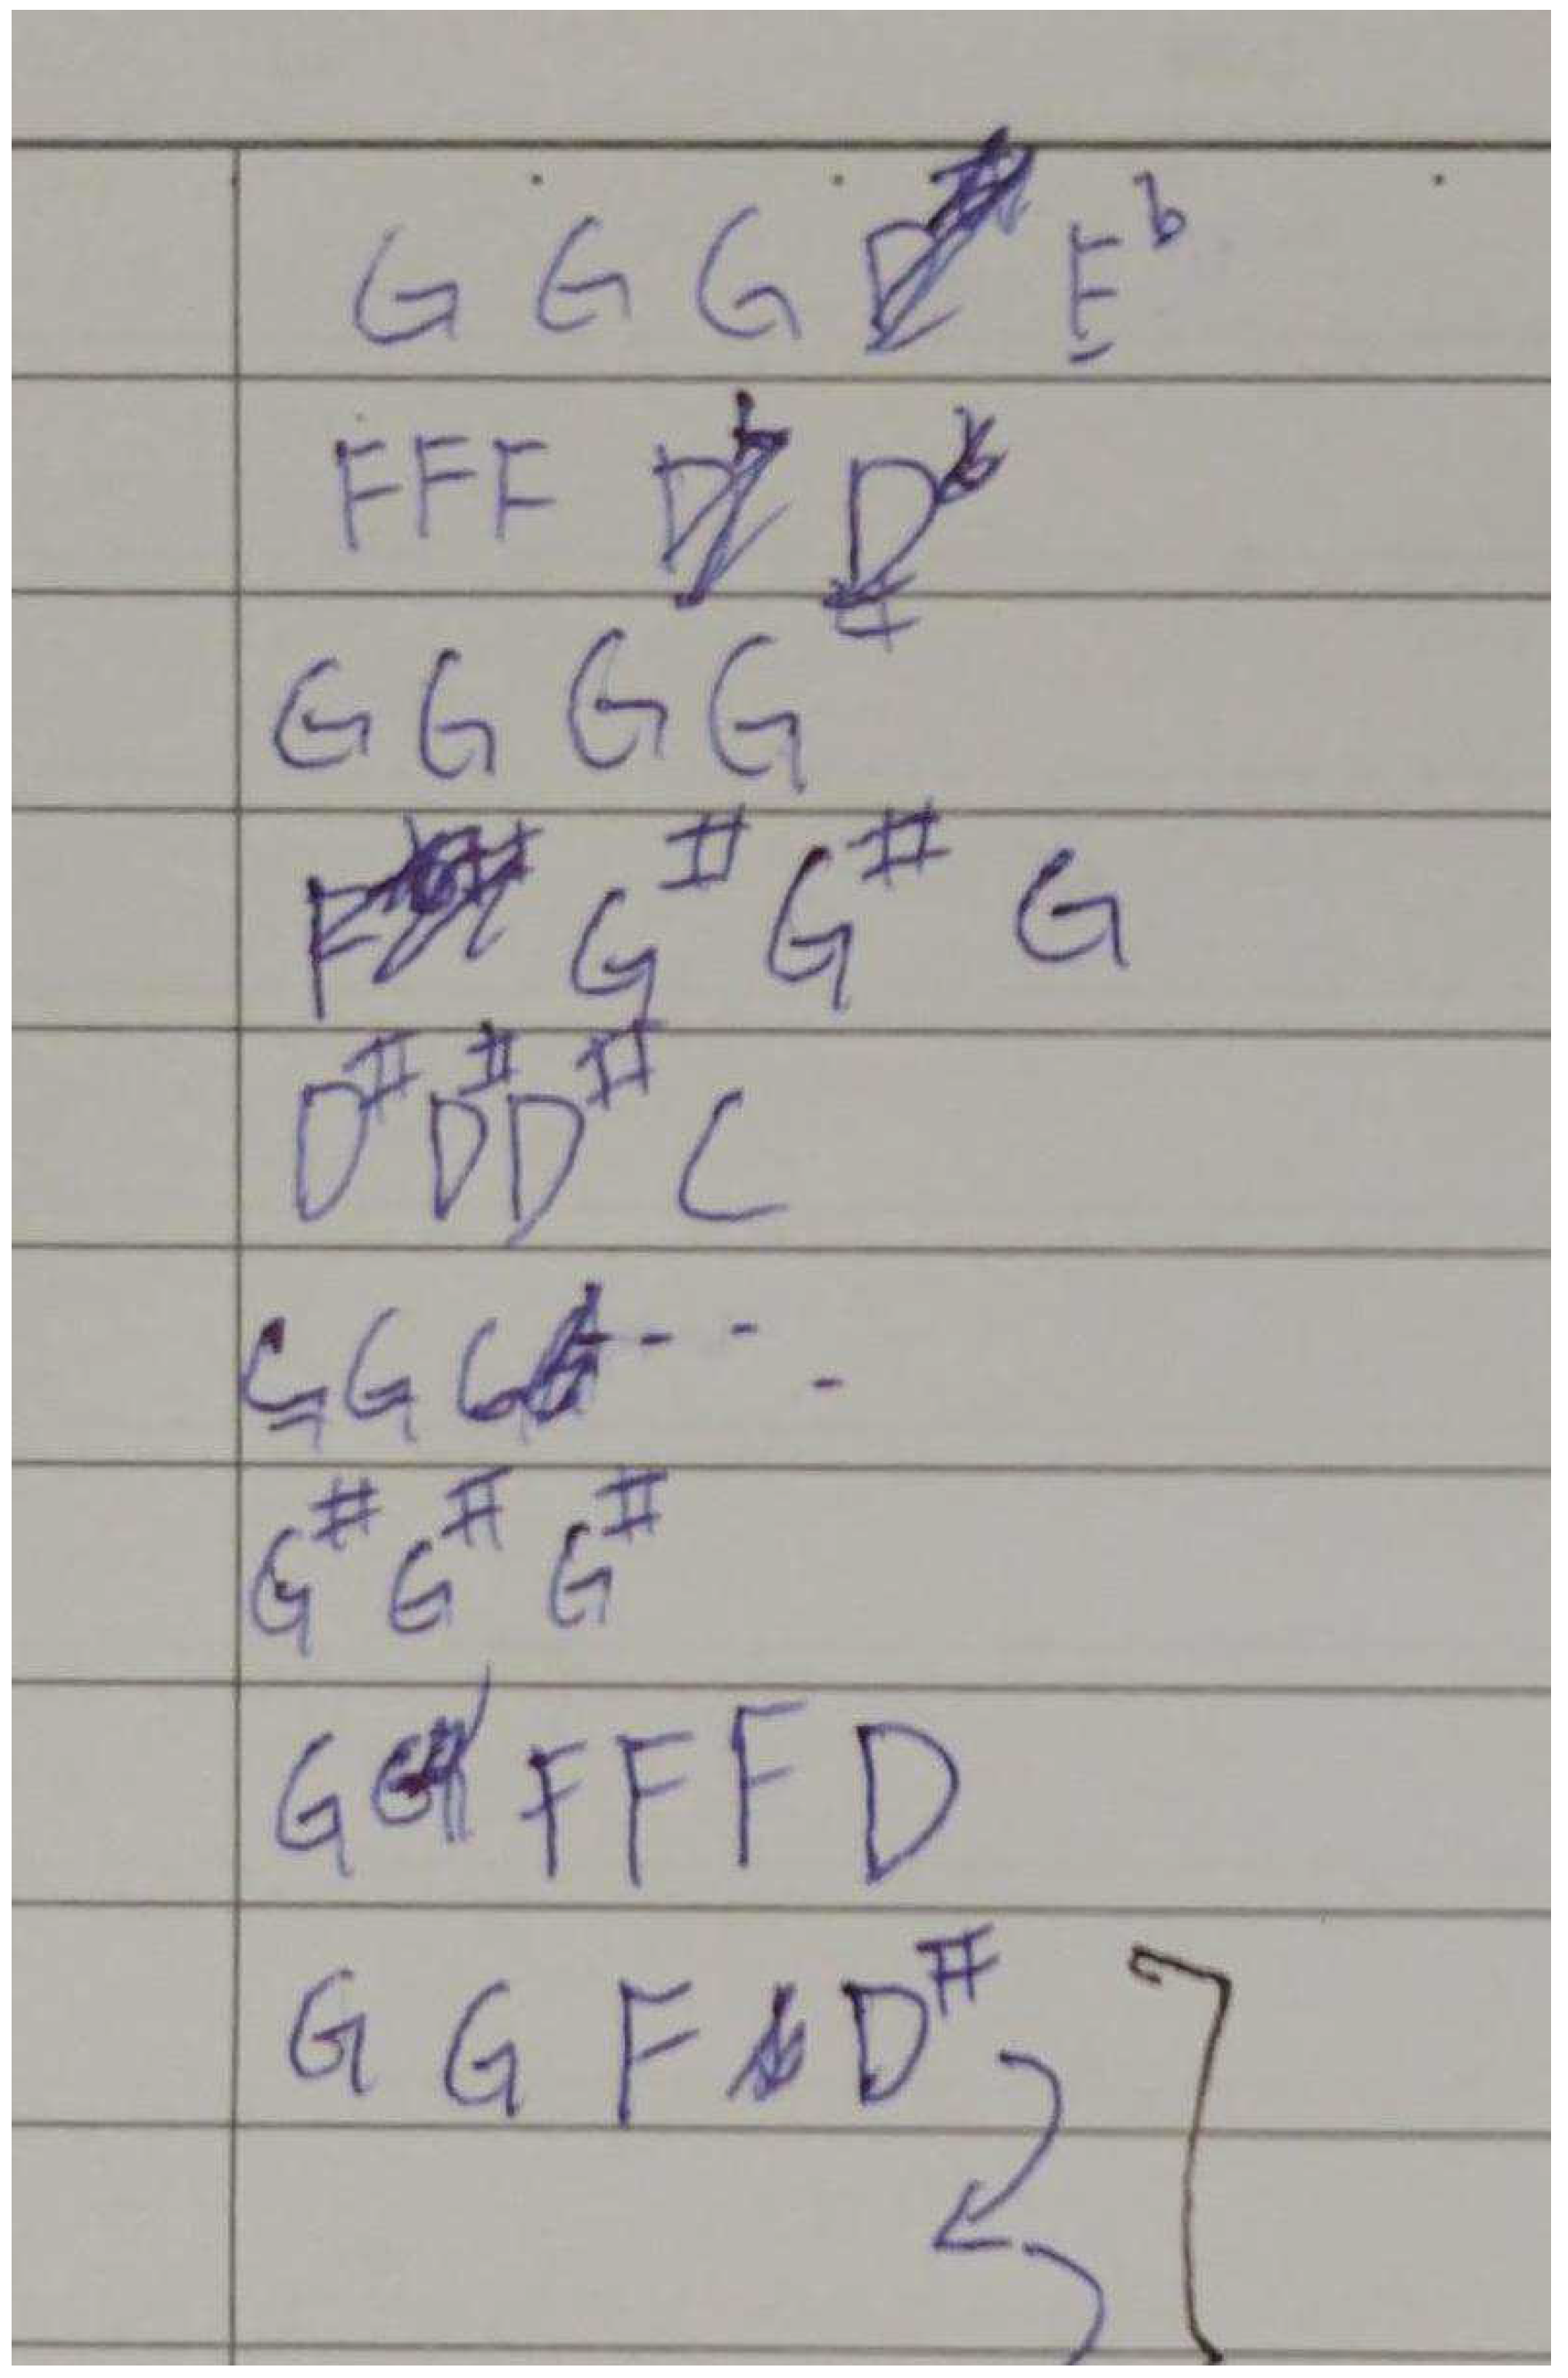 G G G E♭
F F F D
G G G G
G# G# G
D# D# D# C
G G G - - -
G# G# G#
G F F F D
G G F D#